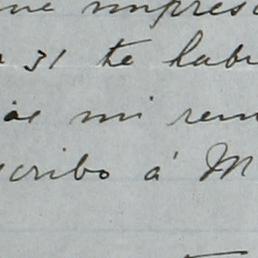 me impres
31 te habr
mi rem
scribo á M